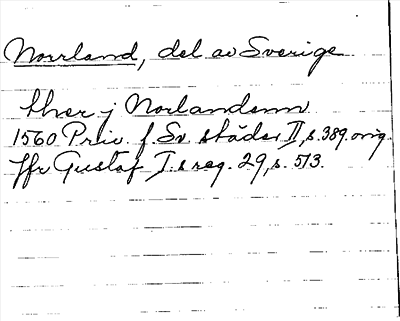 Norrland, del av Sverige
ther j Norlandenn
1560 Priv. f. Sv städer II, s. 389. orig.
Jfr Gustaf I:s reg. 29, s. 513.